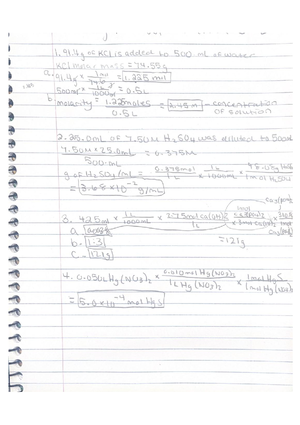 1. 91.4g of KCl is added to 500 mL of water
KCl molar mass = 74.55g
a. 91.4g × = 1.225 mol
500ml × 1L/1000ml = 0.5L
b. molarity = 1.225moles/0.5L = 2.45M - concentration of solution
2. 25.0mL of 7.50M H2SO4 was diluted to 500mL
7.50M × 25.0mL/500mL = 0.375M
g of H2SO4/mL = 0.375mol/1L × 1L/1000mL × /1mol H2SO4
= 3.68 × 10⁻² g/mL
3. 425ml × 1L/1000mL × 2.75mol /1L
a.
b. 1:3 = 121g
c. 121g
4. 0.050L Hg(NO3)2 × 0.010mol Hg(NO3)2/1L Hg(NO3)2 × 1mol HgS/1mol Hg(NO3)2
= 5.0×10⁻⁴ mol HgS